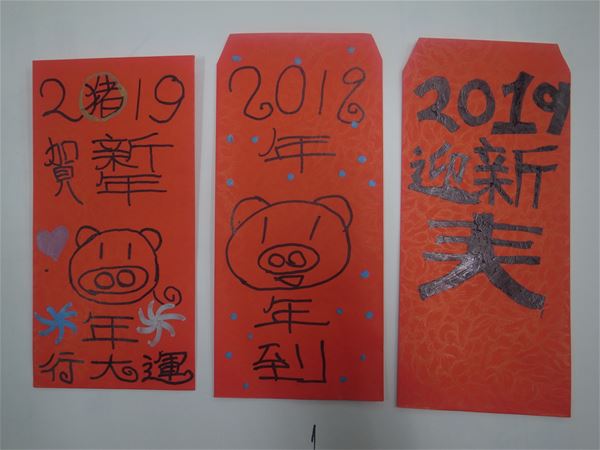 2猪19
賀新年
年
行大運
2019
年
年
到
2019
迎新
1